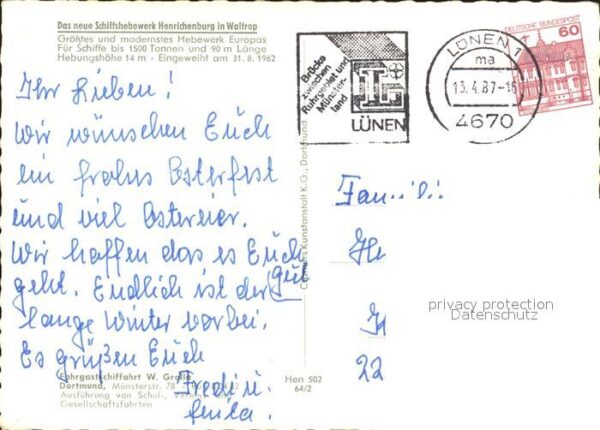 Das neue Schiffshebewerk Henrichenburg in Waltrop
Größtes und modernstes Hebewerk Europas
Für Schiffe bis 1500 Tonnen und 90 m Länge
Hebungshöhe 14 m - Eingeweiht am 31. 8. 1962
Ihr Lieben!
Wir wünschen Euch
ein frohes Osterfest
und viel Ostereier.
Wir hoffen das es Euch
gut
geht. Endlich ist der
lange Winter vorbei.
Es grüßen Euch
Fredi u.
Fahrgastschiffahrt W.
Dortmund, Münsterstr. 78
Ausführung von Schul-, Vereins-
Gesellschaftsfahrten
Hen 502
64/2
Kunstanstalt K.G., Dortmund
Brücke
zwischen
Ruhrgebiet und
Münster-
land
LÜNEN
LÜNEN 1
ma
13.4.87-16
4670
DEUTSCHE BUNDESPOST
60
Famili
He
22
privacy protection
Datenschutz